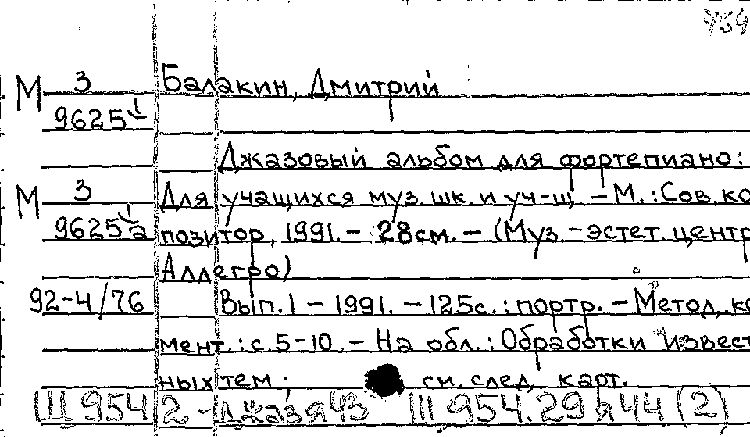 759
М 3 Балакин, Дмитрий
9625
Джазовый альбом для фортепиано:
М 3 Для учащихся муз. шк. и уч-щ. – М.: Сов. ко
9625 а позитор, 1991. – 28см. – (Муз.-эстет. центр
Аллегро)
92-4/76 Вып. 1 – 1991. – 125с.: портр. – Метод. ко
мент.: с. 5-10. – На обл.: Обработки извест
ных тем; см. след. карт.
Щ 954.2-Джазя43 Щ 954.29я44 (2)